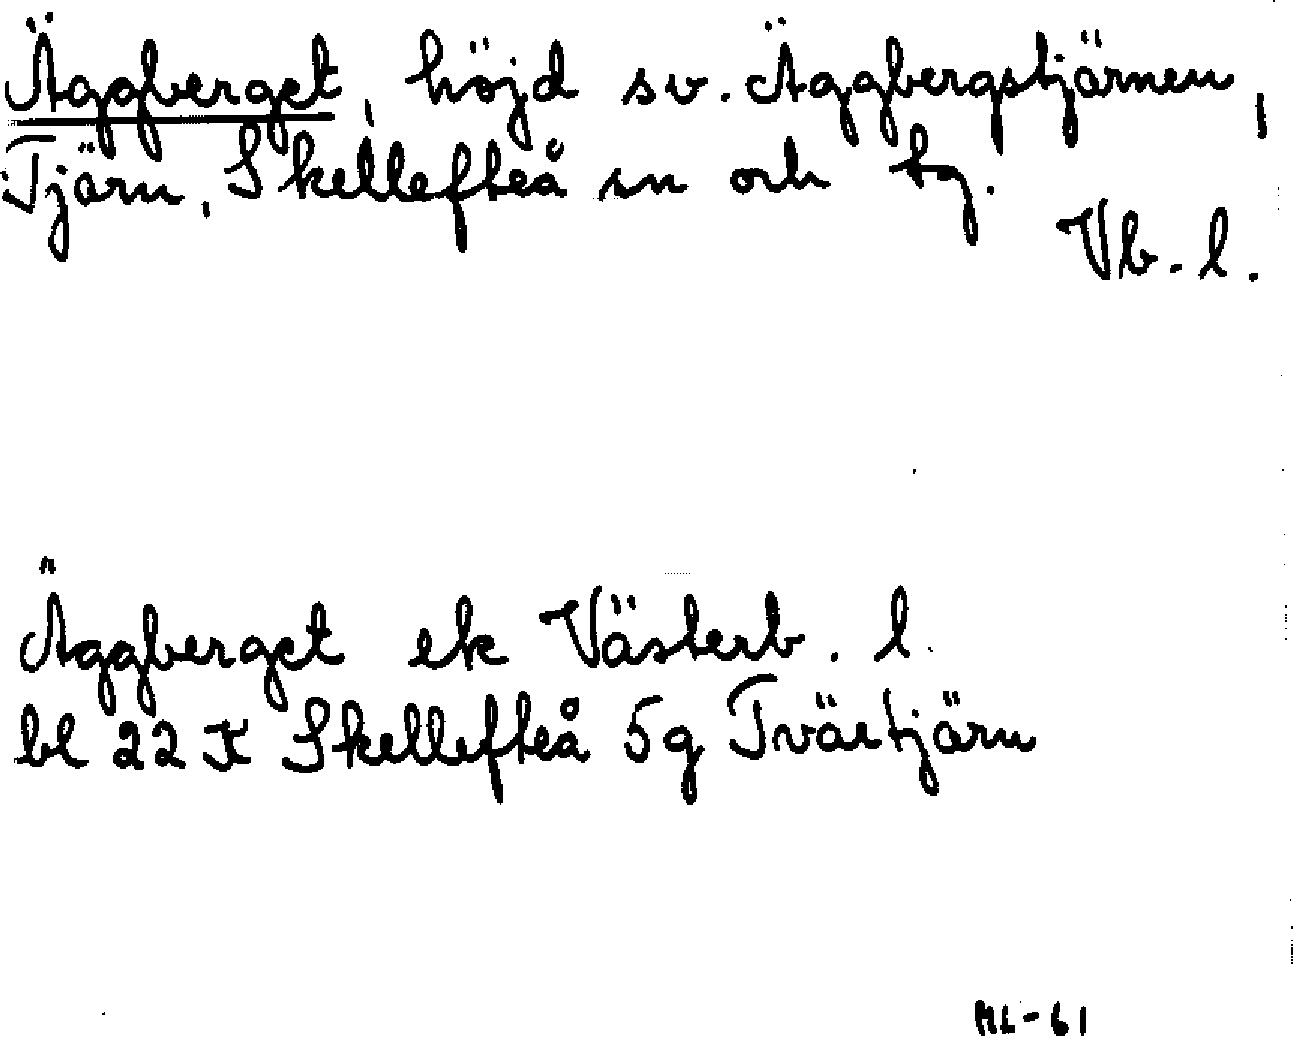 Äggberget, höjd sv. Äggbergstjärnen,
Tjärn, Skellefteå sn och tg.
Vb. l.
Äggberget ek Västerb. l.
bl 22 K Skellefteå 5g Tvärtjärn
ML-61